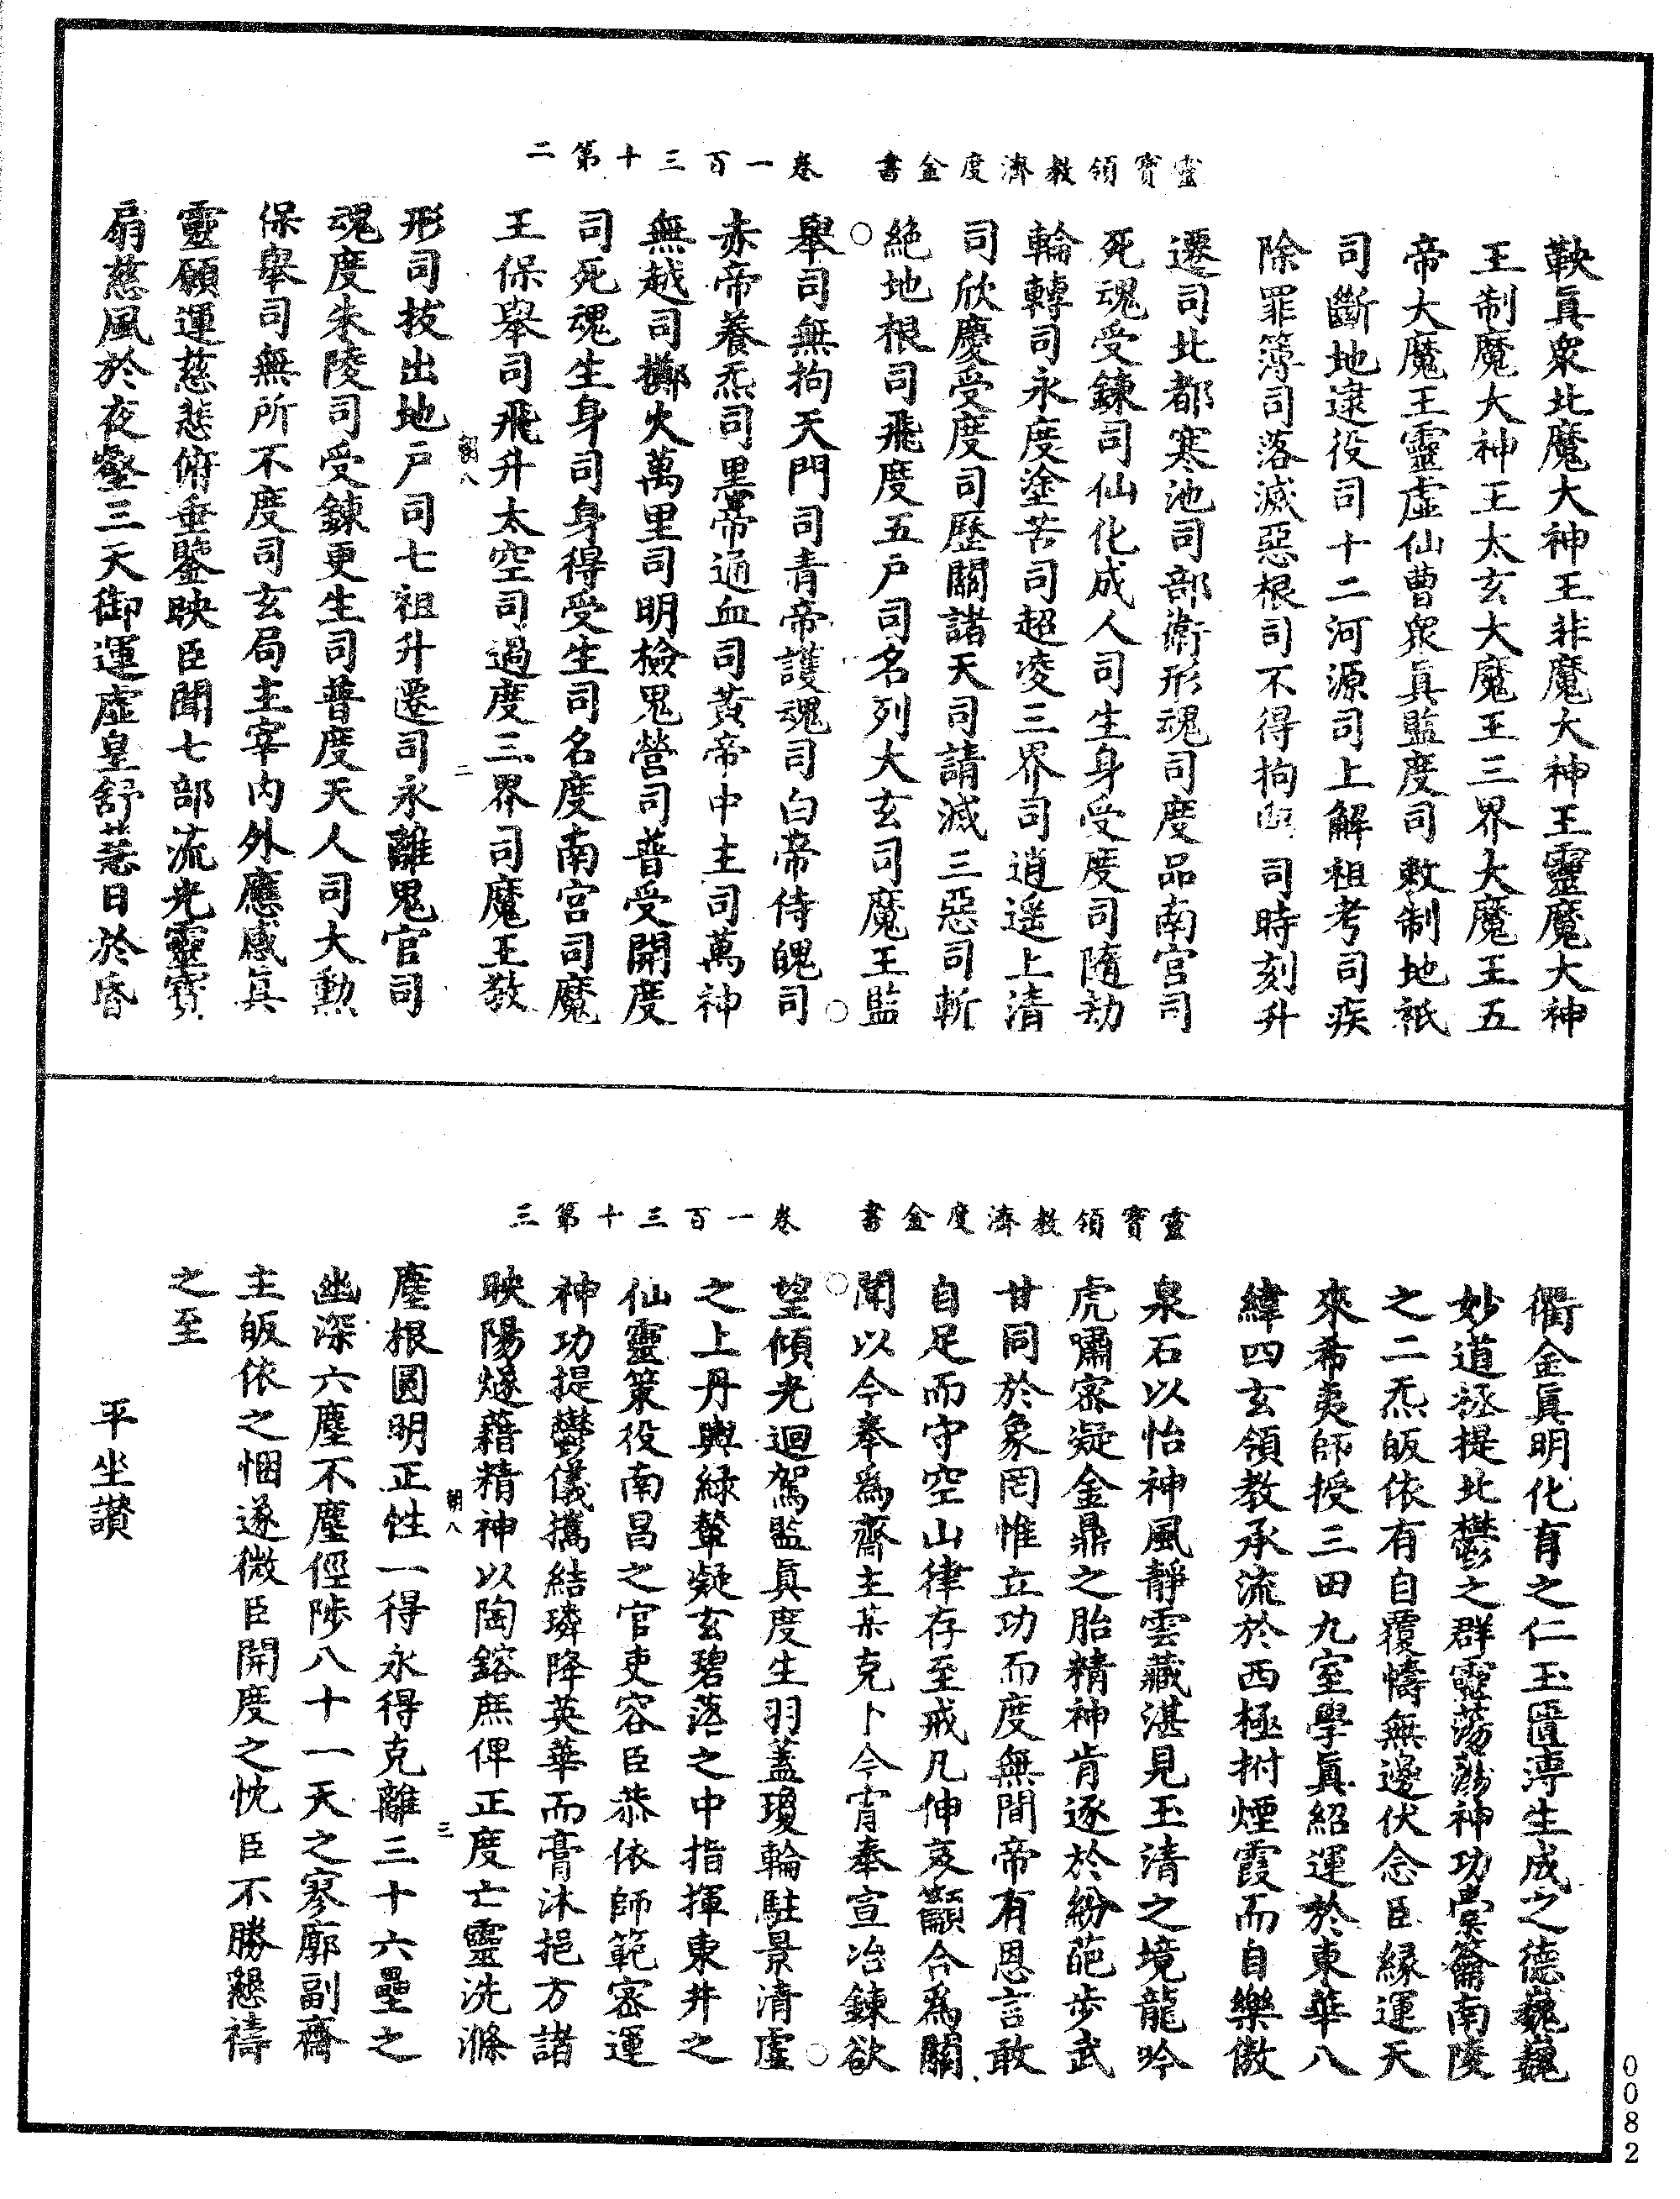 靈寶領教濟度金書　卷一百三十第二
鞅眞衆北魔大神王非魔大神王靈魔大神
王制魔大神王太玄大魔王三界大魔王五
帝大魔王靈虛仙曹衆眞監度司敕制地祇
司斷地逮役司十二河源司上解祖考司疾
除罪簿司落滅惡根司不得拘 司時刻升
遷司北都寒池司部衛形魂司度品南宮司
死魂受鍊司仙化成人司生身受度司隨劫
輪轉司永度塗苦司超凌三界司逍遥上清
司欣慶受度司歷關諸天司請滅三惡司斬
絶地根司飛度五户司名列太玄司魔王監
舉司無拘天門司青帝護魂司白帝侍魄司
赤帝養炁司黑帝通血司黄帝中主司萬神
無越司擲火萬里司明檢鬼營司普受開度
司死魂生身司身得受生司名度南宮司魔
王保舉司飛升太空司過度三界司魔王敬
形司拔出地户司七祖升遷司永離鬼官司
朝八　二
魂度朱陵司受鍊更生司普度天人司大勲
保舉司無所不度司玄局主宰内外應感眞
靈願運慈悲俯垂鑒映臣聞七部流光靈寶
扇慈風於夜壑三天御運虛皇舒慧日於昏
靈寶領教濟度金書　卷一百三十第三
衢金眞明化有之仁玉匱溥生成之德巍巍
妙道拯提北鬱之群靈蕩蕩神功橐籥南陵
之二炁皈依有自覆幬無邊伏念臣緣運天
來希夷師授三田九室學眞紹運於東華八
緯四玄領教承流於西極拊煙霞而自樂傲
泉石以怡神風靜雲藏湛見玉清之境龍吟
虎嘯密凝金鼎之胎精神肯逐於紛葩步武
甘同於象罔惟立功而度無間帝有恩言敢
自足而守空山律存至戒凡伸哀籲合爲關
聞以今奉爲齋主某克卜今宵奉宣冶鍊欲
望傾光迴駕監眞度生羽蓋瓊輪駐景清虛
之上丹輿緑輦凝玄碧落之中指揮東井之
仙靈策役南昌之官吏容臣恭依師範密運
神功提鬱儀攜結璘降英華而膏沐挹方諸
映陽燧藉精神以陶鎔庶俾正度亡靈洗滌
塵根圓明正性一得永得克離三十六壘之
朝八　三
幽深六塵不塵徑陟八十一天之寥廓副齋
主皈依之悃遂微臣開度之忱臣不勝懇禱
之至
平坐讃
0082